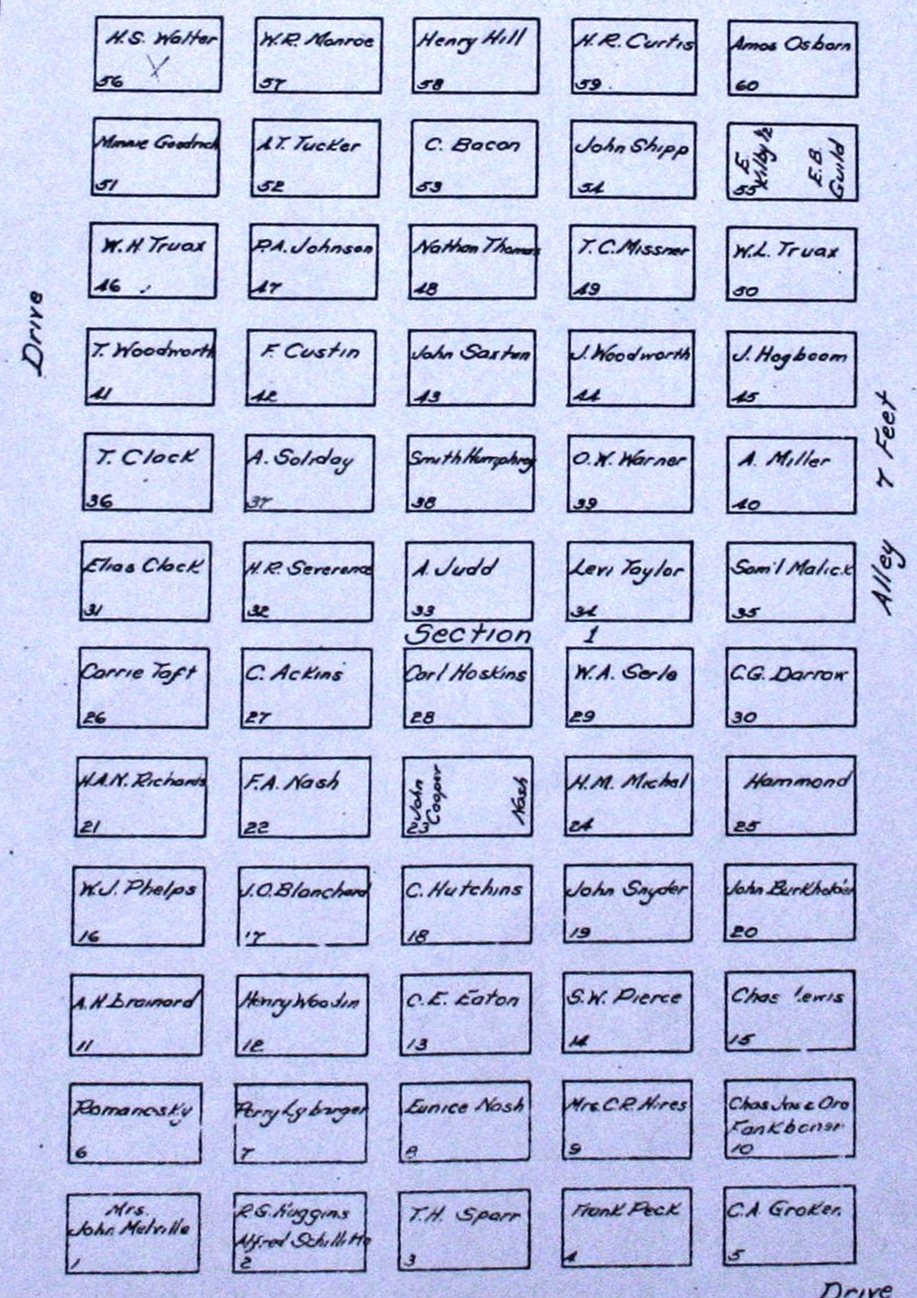 H.S. Walter
56
W.R. Monroe
57
Henry Hill
58
H.R. Curtis
59
Amos Osborn
60
Minnie Goodrich
51
A.T. Tucker
52
C. Bacon
53
John Shipp
54
E.
Kilby ½
E.B.
Guild
55
W.H Truax
46
P.A. Johnson
47
Nathan Thomas
48
T.C. Missner
49
W.L. Truax
50
Drive
T. Woodworth
41
F. Custin
42
John Saxton
43
J. Woodworth
44
J. Hogboom
45
T. Clack
36
A. Soliday
37
Smith Humphrey
38
O.W. Warner
39
A. Miller
40
Alley 7 Feet
Elias Clack
31
H.R. Severence
32
A. Judd
33
Levi Taylor
34
Sam'l Malick
35
Section 1
Carrie Taft
26
C. Ackins
27
Carl Hoskins
28
W.A. Serls
29
C.G. Darrow
30
H.A.N. Richards
21
F.A. Nash
22
John
Cooper
Nash
23
H.M. Michal
24
Hammond
25
W.J. Phelps
16
J.O. Blanchard
17
C. Hutchins
18
John Snyder
19
John Burkholder
20
A.H Brainard
11
Henry Woodin
12
C.E. Eaton
13
S.W. Pierce
14
Chas Lewis
15
Romanosky
6
Perry Lybarger
7
Eunice Nash
8
Mrs. C.R. Hires
9
Chas Jas & Ora
Fankboner
10
Mrs.
John Melville
1
R.G. Huggins
Alfred Schillitto
2
T.H. Sparr
3
Frank Peck
4
C.A Groken
5
Drive